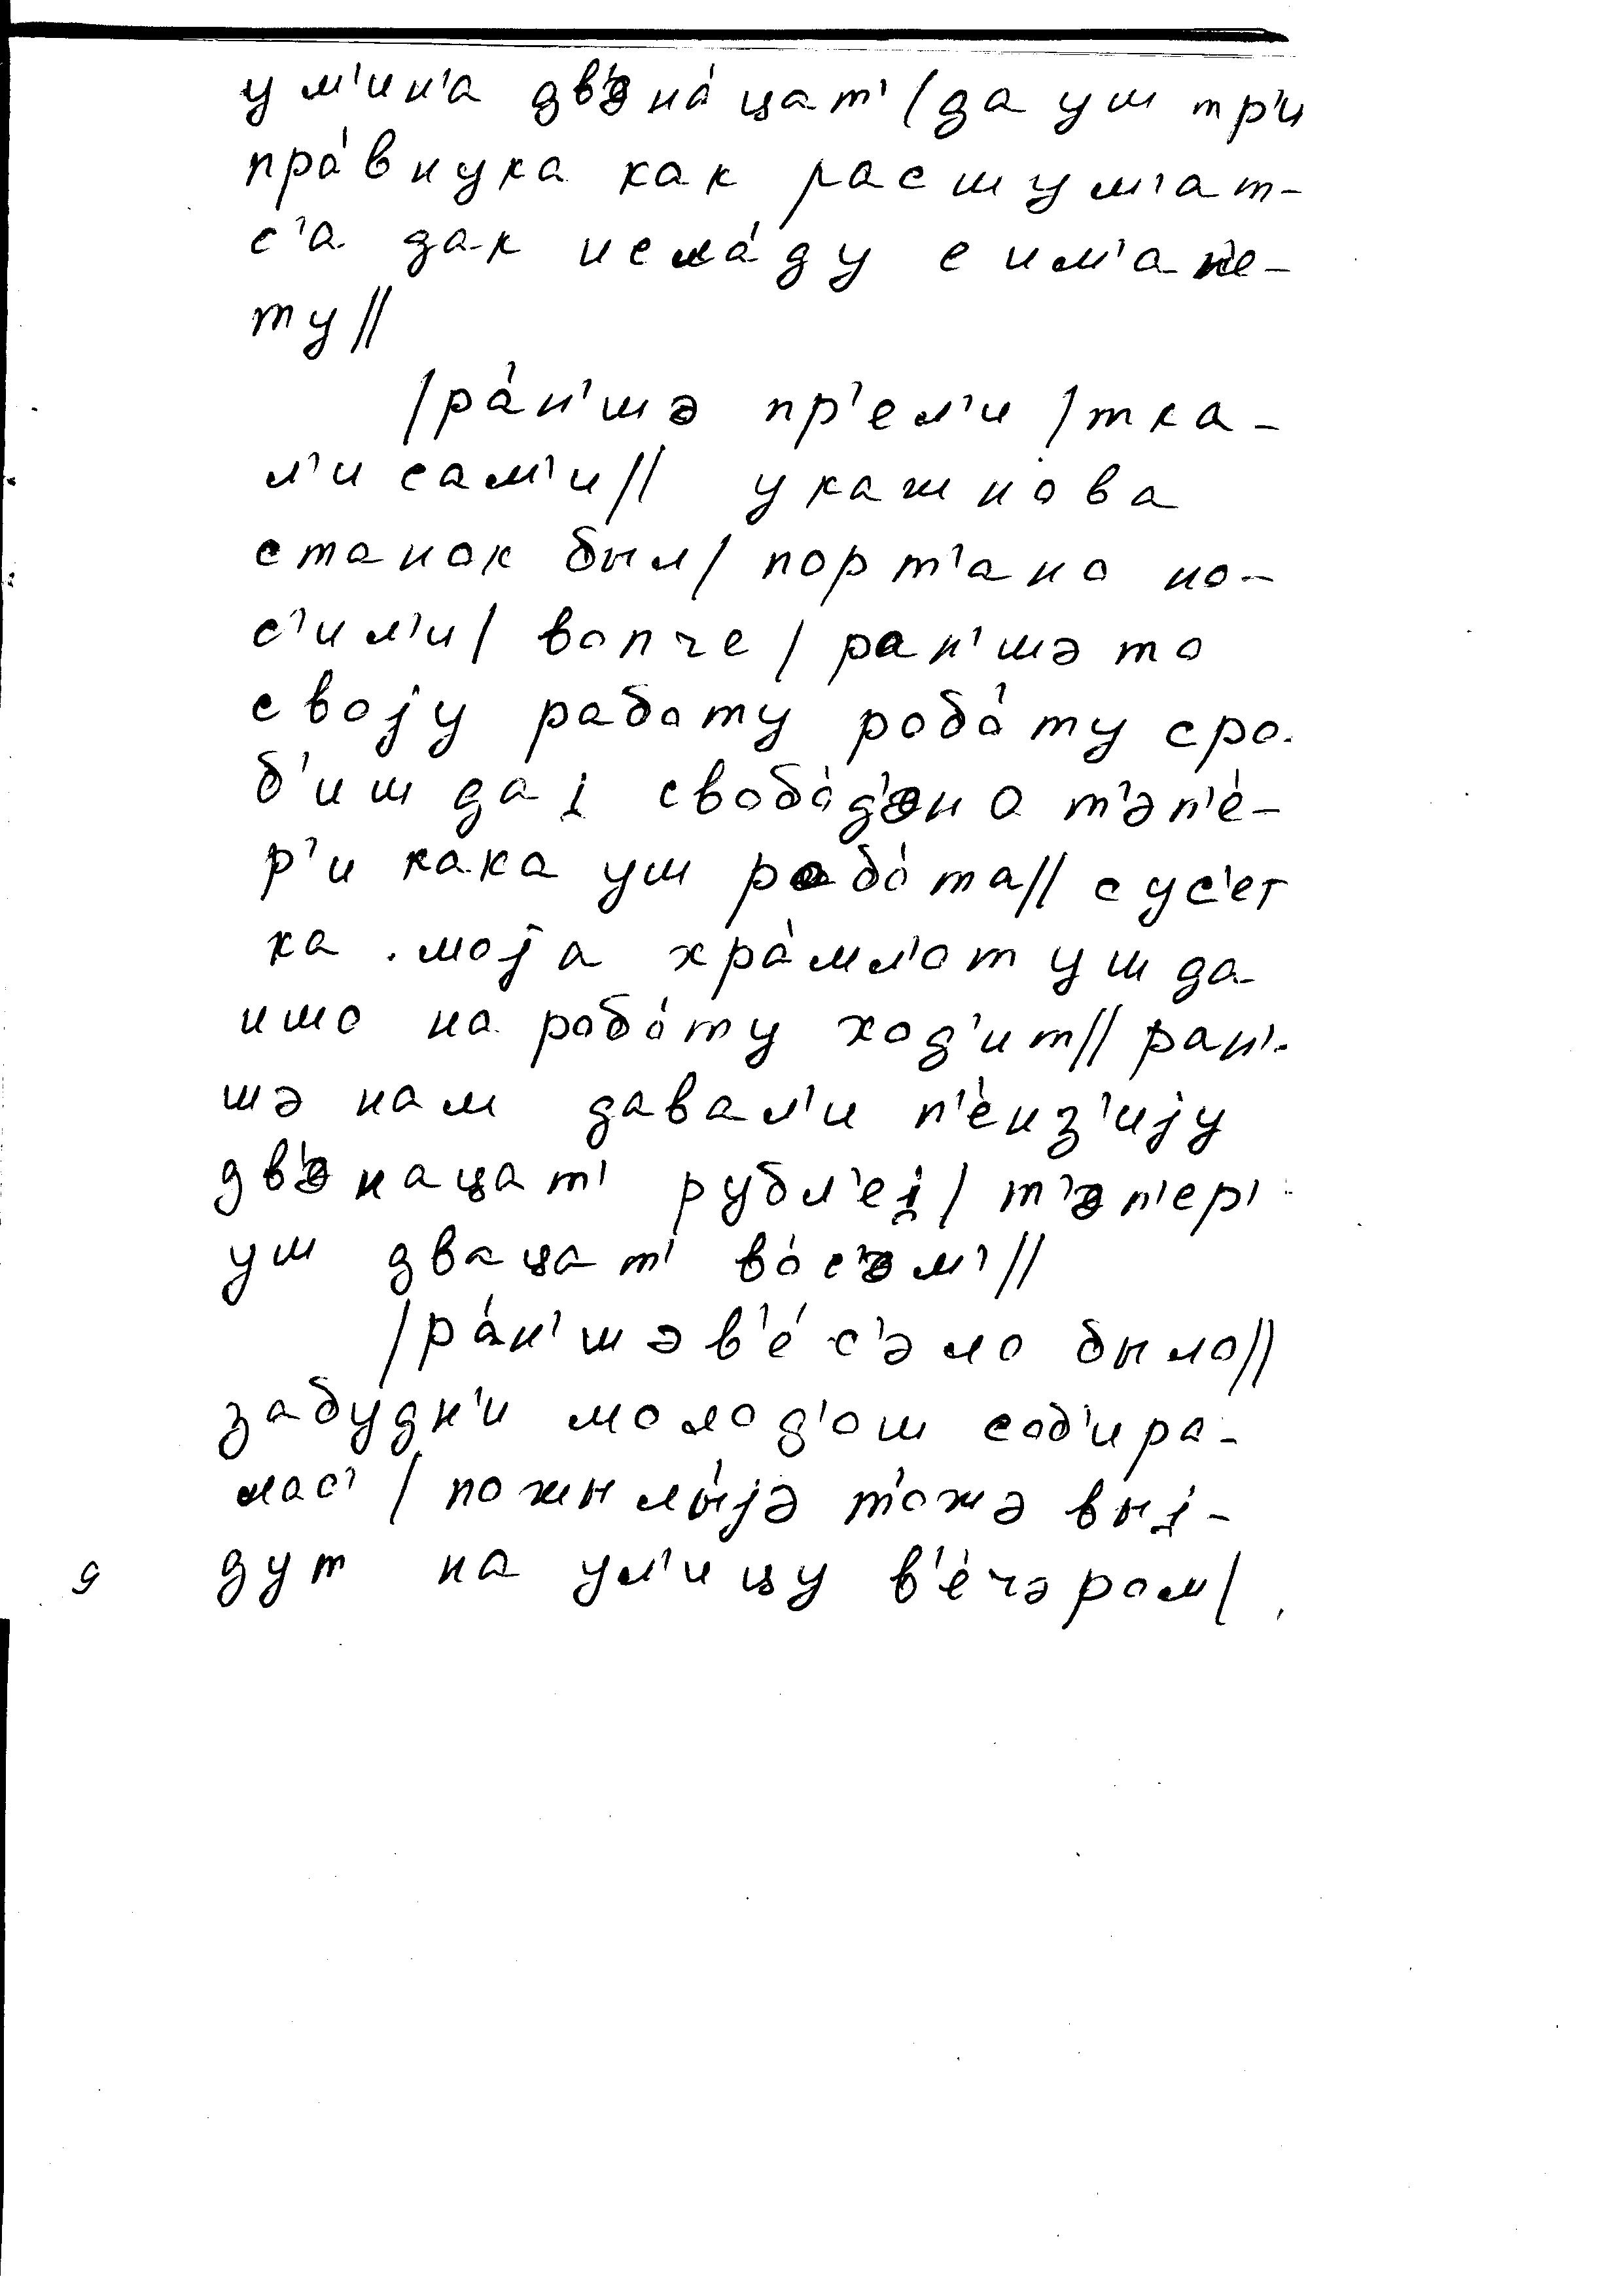 ум'ин'а дв'әна́цат' / да уш тр'и
пра́внука как расшум'ат-
с'а дак исла́ду с им'а не-
ту //
/ ра́н'шә пр'ел'и / тка-
л'и сам'и // у кажнова
станок был / порт'ано но-
с'ил'и / вопче / ран'шә то
своју работу робо́ту сро-
б'иш да į свобо́д'әно т'әп'е́-
р'и кака уш робо́та // сус'ет
ка моја хра́мл'от уш да
ишо на робо́ту ход'ит // ран'-
шә нам давал'и п'е́нз'ију
дв'әнацат' рубл'еį / т'әп'ер'
уш двацат' во́с'әм' //
/ ра́н'шә в'е́с'әло было //
забудн'и молод'ош соб'ира-
лас' / пожылы́јә тожә выį-
дут на ул'ицу в'е́чәром /
9